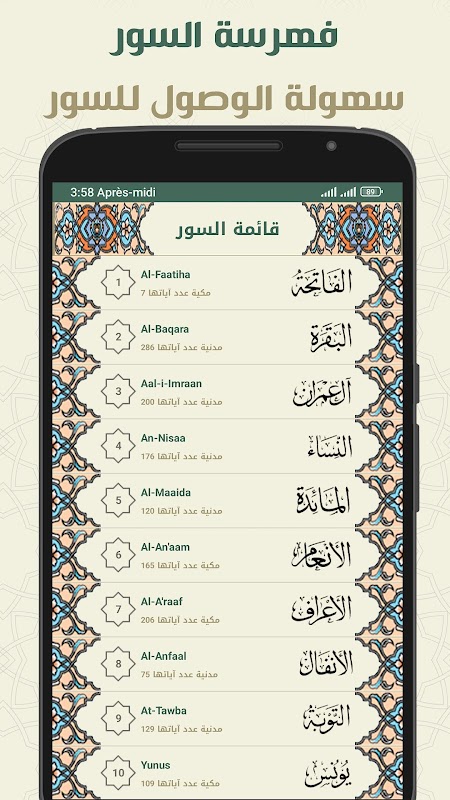 فهرسة السور
سهولة الوصول للسور
3:58 Après-midi
89
قائمة السور
1
Al-Faatiha
مكية عدد آياتها 7
الفَاتِحَة
2
Al-Baqara
مدنية عدد آياتها 286
البَقَرَة
3
Aal-i-Imraan
مدنية عدد آياتها 200
آل عِمرَان
4
An-Nisaa
مدنية عدد آياتها 176
النِّسَاء
5
Al-Maaida
مدنية عدد آياتها 120
المَائدة
6
Al-An'aam
مكية عدد آياتها 165
الأنعَام
7
Al-A'raaf
مكية عدد آياتها 206
الأعرَاف
8
Al-Anfaal
مدنية عدد آياتها 75
الأنفَال
9
At-Tawba
مدنية عدد آياتها 129
التوبَة
10
Yunus
مكية عدد آياتها 109
يُونس